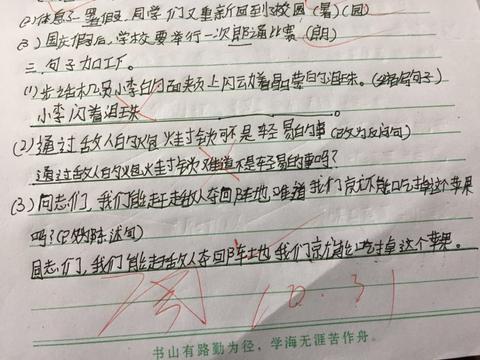 (2)休息了一暑假,同学们又重新回到了校园(暑)(园)
(3)国庆假后,学校要举行一次朗诵比赛(朗)
三.句子加工厂。
(1)步话机员小李白的面颊上闪动着晶莹的泪珠。(缩句子)
小李闪着泪珠
(2)通过敌人的火烽封锁可不是轻易的事(改为反问句)
通过敌人的火烽封锁难道不是轻易的事吗?
(3)同志们,我们能赶走敌人夺回阵地难道我们就不能吃掉这个苹果
吗?(改为陈述句)
同志们,我们能走敌人夺回阵土地我们就能吃掉这个苹果。
阅 10.31
书山有路勤为径,学海无涯苦作舟。